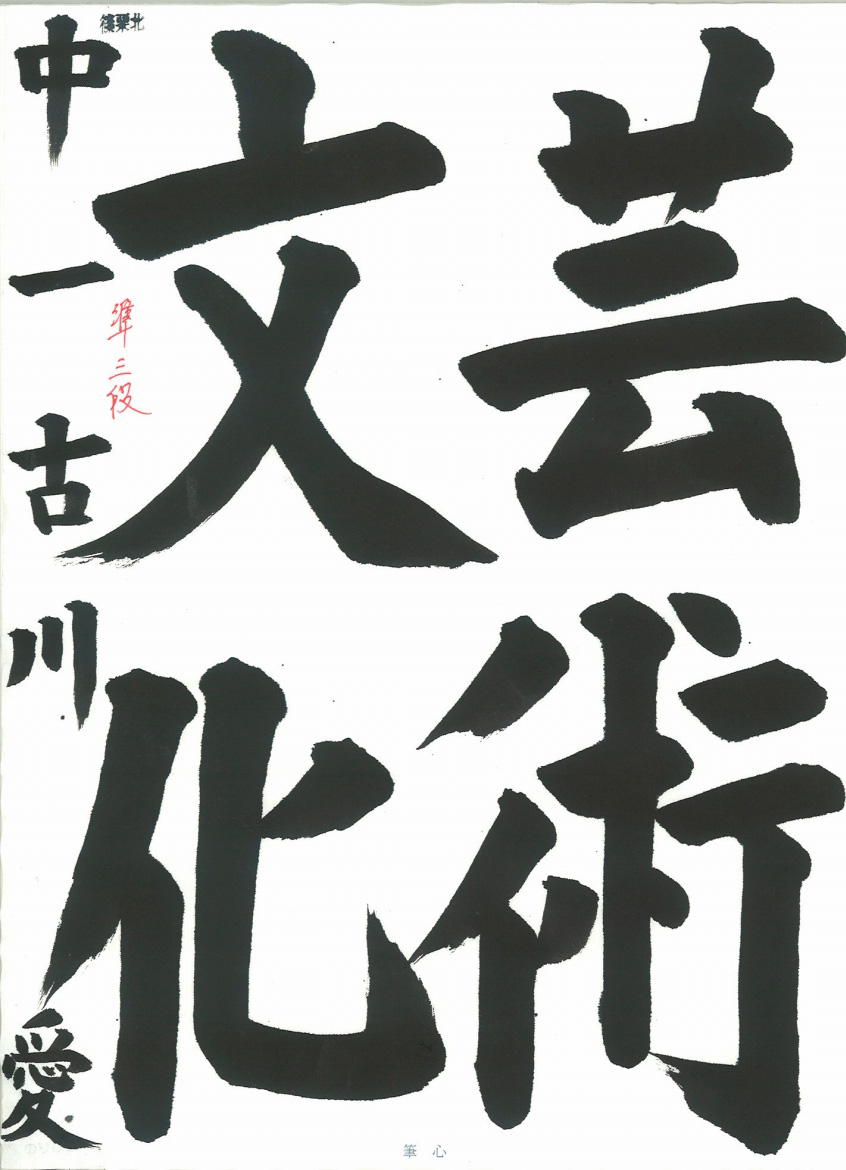 芸術
文化
中一 古川 愛
準三段
北粟篠
心筆